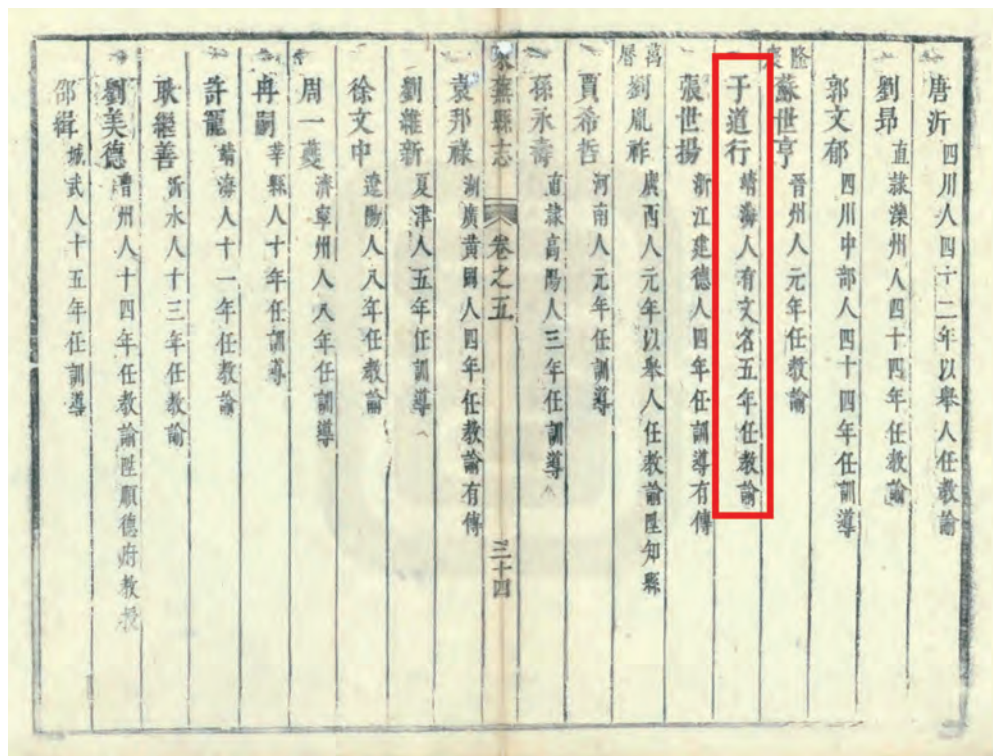 唐沂 四川人四十二年以舉人任教諭
劉昻 直隷灤州人四十四年任教諭
郭文郁 四川中部人四十四年任訓導
隆慶
蘇世亨 晉州人元年任教諭
于道行 靖海人有文名五年任教諭
張世揚 浙江建德人四年任訓導有傳
萬曆
劉胤祚 廣西人元年以舉人任教諭陞知縣
賈希哲 河南人元年任訓導
孫永壽 直隷高陽人三年任訓導
蕪縣志 卷之五 三十四
袁邦祿 湖廣黃岡人四年任教諭有傳
劉維新 夏津人五年任訓導
徐文中 遼陽人八年任教諭
周一夔 濟寧州人八年任訓導
冉嗣 莘縣人十年任訓導
許寵 靖海人十一年任教諭
耿繼善 沂水人十三年任教諭
劉美德 曹州人十四年任教諭陞順德府教授
邵緝 城武人十五年任訓導